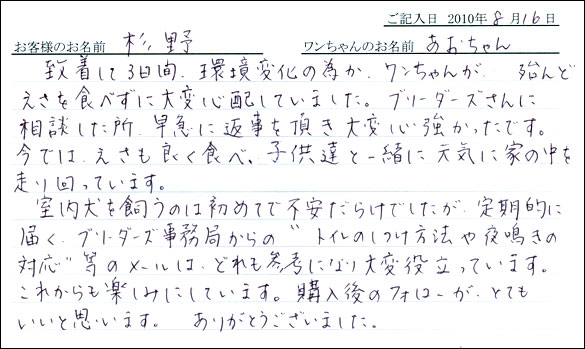 ご記入日 2010年 8月16日
お客様のお名前 杉野 ワンちゃんのお名前 あおちゃん
致着して3日間、環境変化の為か、ワンちゃんが、殆んど
えさを食べずに大変心配していました。ブリーダーズさんに
相談した所、早急に返事を頂き大変心強かったです。
今では、えさも良く食べ、子供達と一緒に元気に家の中を
走り回っています。
室内犬を飼うのは初めてで不安だらけでしたが、定期的に
届く、ブリーダーズ事務局からの〝トイレのしつけ方法や夜鳴きの
対応〞等のメールは、どれも参考になり大変役立っています。
これからも楽しみにしています。購入後のフォローが、とても
いいと思います。 ありがとうございました。